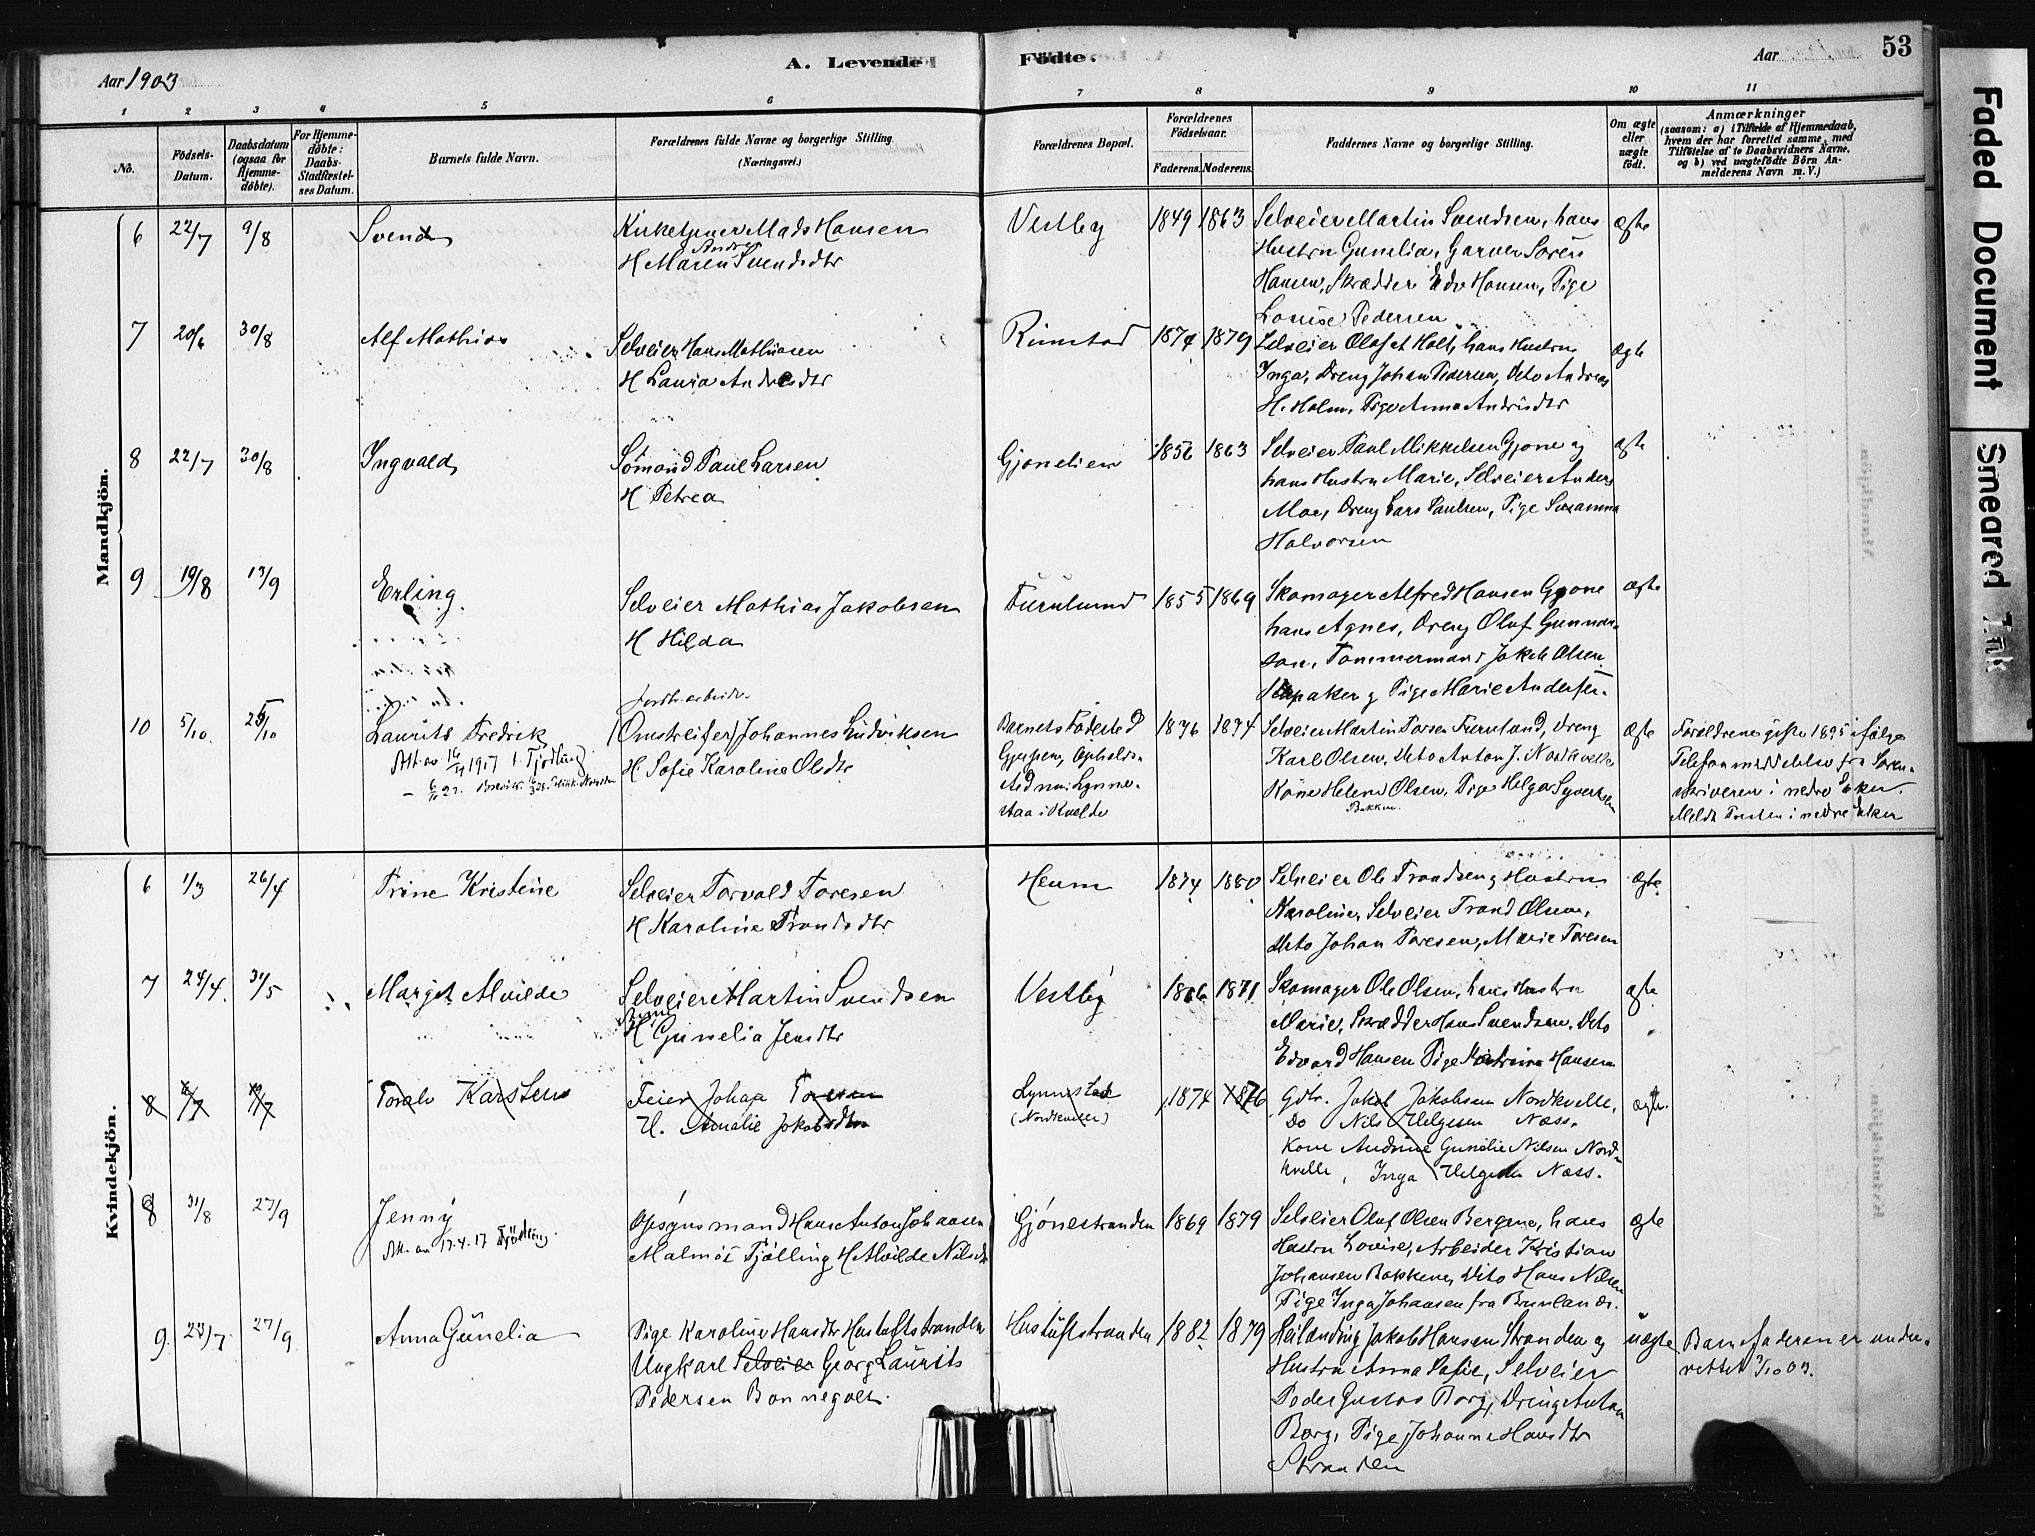 Aar 1903
A. Levende
Födte.
Aar
53
1 2 3 4 5 6 7 8 9 10 11
No.
Födsels-Datum.
Daabsdatum (ogsaa for Hjemme-döbte).
For Hjemme-döbte: Daabs-Stadfæstel-ses Datum.
Barnets fulde Navn.
Forældrenes fulde Navne og borgerlige Stilling. (Næringsvei.)
Forældrenes Bopæl.
Forældrenes Födselsaar.
Faderens. Moderens.
Faddernes Navne og borgerlige Stilling.
Om ægte eller uægte födt.
Anmærkninger
(saasom: a) i Tilfælde af Hjemmedaab,
hvem der har forrettet samme, med
Tilföielse af to Daabsvidners Navne,
og b) ved uægtefödte Börn An-
melderens Navn m. V.)
Mandkjön.
6 22/7 9/8 Svend
Kirketjener Mads Hansen
H Maren Andrea Svendsdtr
Vestby 1849 1863
Selveier Martin Svendsen, hans
Hustru Gunelia, Garver Søren
Hansen, Skrædder Edv Hansen, Pige
Louise Pedersen
ægte
7 20/6 30/8 Alf Mathias
Selveier Hans Mathiasen
H Laura Andersdtr
Rimstad 1874 1879
Selveier Olaf et Holt, hans Hustru
Inga, Dreng Johan Pedersen, Dito Andreas
H. Holm, Pige Anna Andrisdtr
ægte
8 22/7 30/8 Ingvald
Sømand Paul Larsen
H Petrea
Gjonelien 1856 1863
Selveier Paul Mikkelsen Gjone og
hans Hustru Marie, Selveier Anders
Moe, Dreng Lars Paulsen, Pige Susanna
Halvorsen
ægte
9 19/8 13/9 Erling
Selveier Mathias Jakobsen
H Hilda
Furulund 1855 1869
Skomager Alfred Hansen Gjone
hans Agnes, Dreng Oluf Gunnar-
son, Tømmermand Jakob Olsen
og Pige Marie Andersen
ægte
10 5/10 25/10 Laurits Fredrik
Att. av 16/4 1917 t. Tjødling
Jordb.arbeider
(Omstreifer) Johannes Ludviksen
H. Sofie Karoline Olsdtr
Barnets Fødested
Gjerpen, Opholds-
sted nu: Lynne-
staa i Kvelde
1876 1874
Selveier Martin Torsen Furulund, Dreng
Karl Olsen, Dito Anton J. Nordkvelle
Kone Helene Olsen, Pige Helga Syvertsen
Bakken.
ægte
Forældrene gifte 1895 ifølge
Telefonmeddelelse fra Soren-
skriveren i nedre Eker.
Meldt Presten i nedre Eker
Kvindekjön.
6 1/3 26/4 Trine Kristine
Selveier Torvald Toresen
H Karoline Trondsdtr
Heum 1874 1880
Selveier Ole Trondsen og Hustru
Karoline, Selveier Trond Olsen,
Dito Johan Toresen, Marie Toresen
ægte
7 24/4 31/5 Margit Alvilde
Selveier Martin Svendsen
H Gunelia Jensdtr
Vestby 1866 1871
Skomager Ole Olsen, hans Hustru
Marie, Skrædder Hans Svendsen, Dito
Edvard Hansen Pige Katrine Hansen
ægte
8 Toralv Karsten
Feier Johan Toresen
H. Amalie Jakobsdtr
Lynnestad
(Nordkvelle)
1874 1876
Gdbr. Jakob Jakobsen Nordkvelle,
Do Nils Helgesen Næss.
Kone Andrine Gunelie Nilsen Nord-
kvelle, Inga Helgesen Næss.
ægte.
8 31/8 27/9 Jenny
Att. av 17.4.17 Tjødling.
Opsynsmand Hans Anton Johansen
Malmøi Tjølling H Alvilde Nilsdtr
Gjønestranden 1869 1879
Selveier Oluf Olsen Bergene, hans
Hustru Lovise, Arbeider Kristian
Johansen Bakkene, Dito Hans Nilsen
Pige Inga Johansen fra Brunlanæs.
ægte
9 23/7 27/9 Anna Gunelia
Pige Karoline Hansdtr Hustuftstranden
Ungkarl Selveier Georg Laurits
Pedersen Bonnegolt.
Hustuftstranden 1882 1879
Jakob Hansen Stranden og
Hustru Anna Sofie, Selveier
Peder Gustav Borg, Dreng Anton
Borg, Pige Johanne Hansdtr
Stranden
uægte
Barnefaderen er under-
rettet 3/10 03.
Faded Document
Smeared Ink